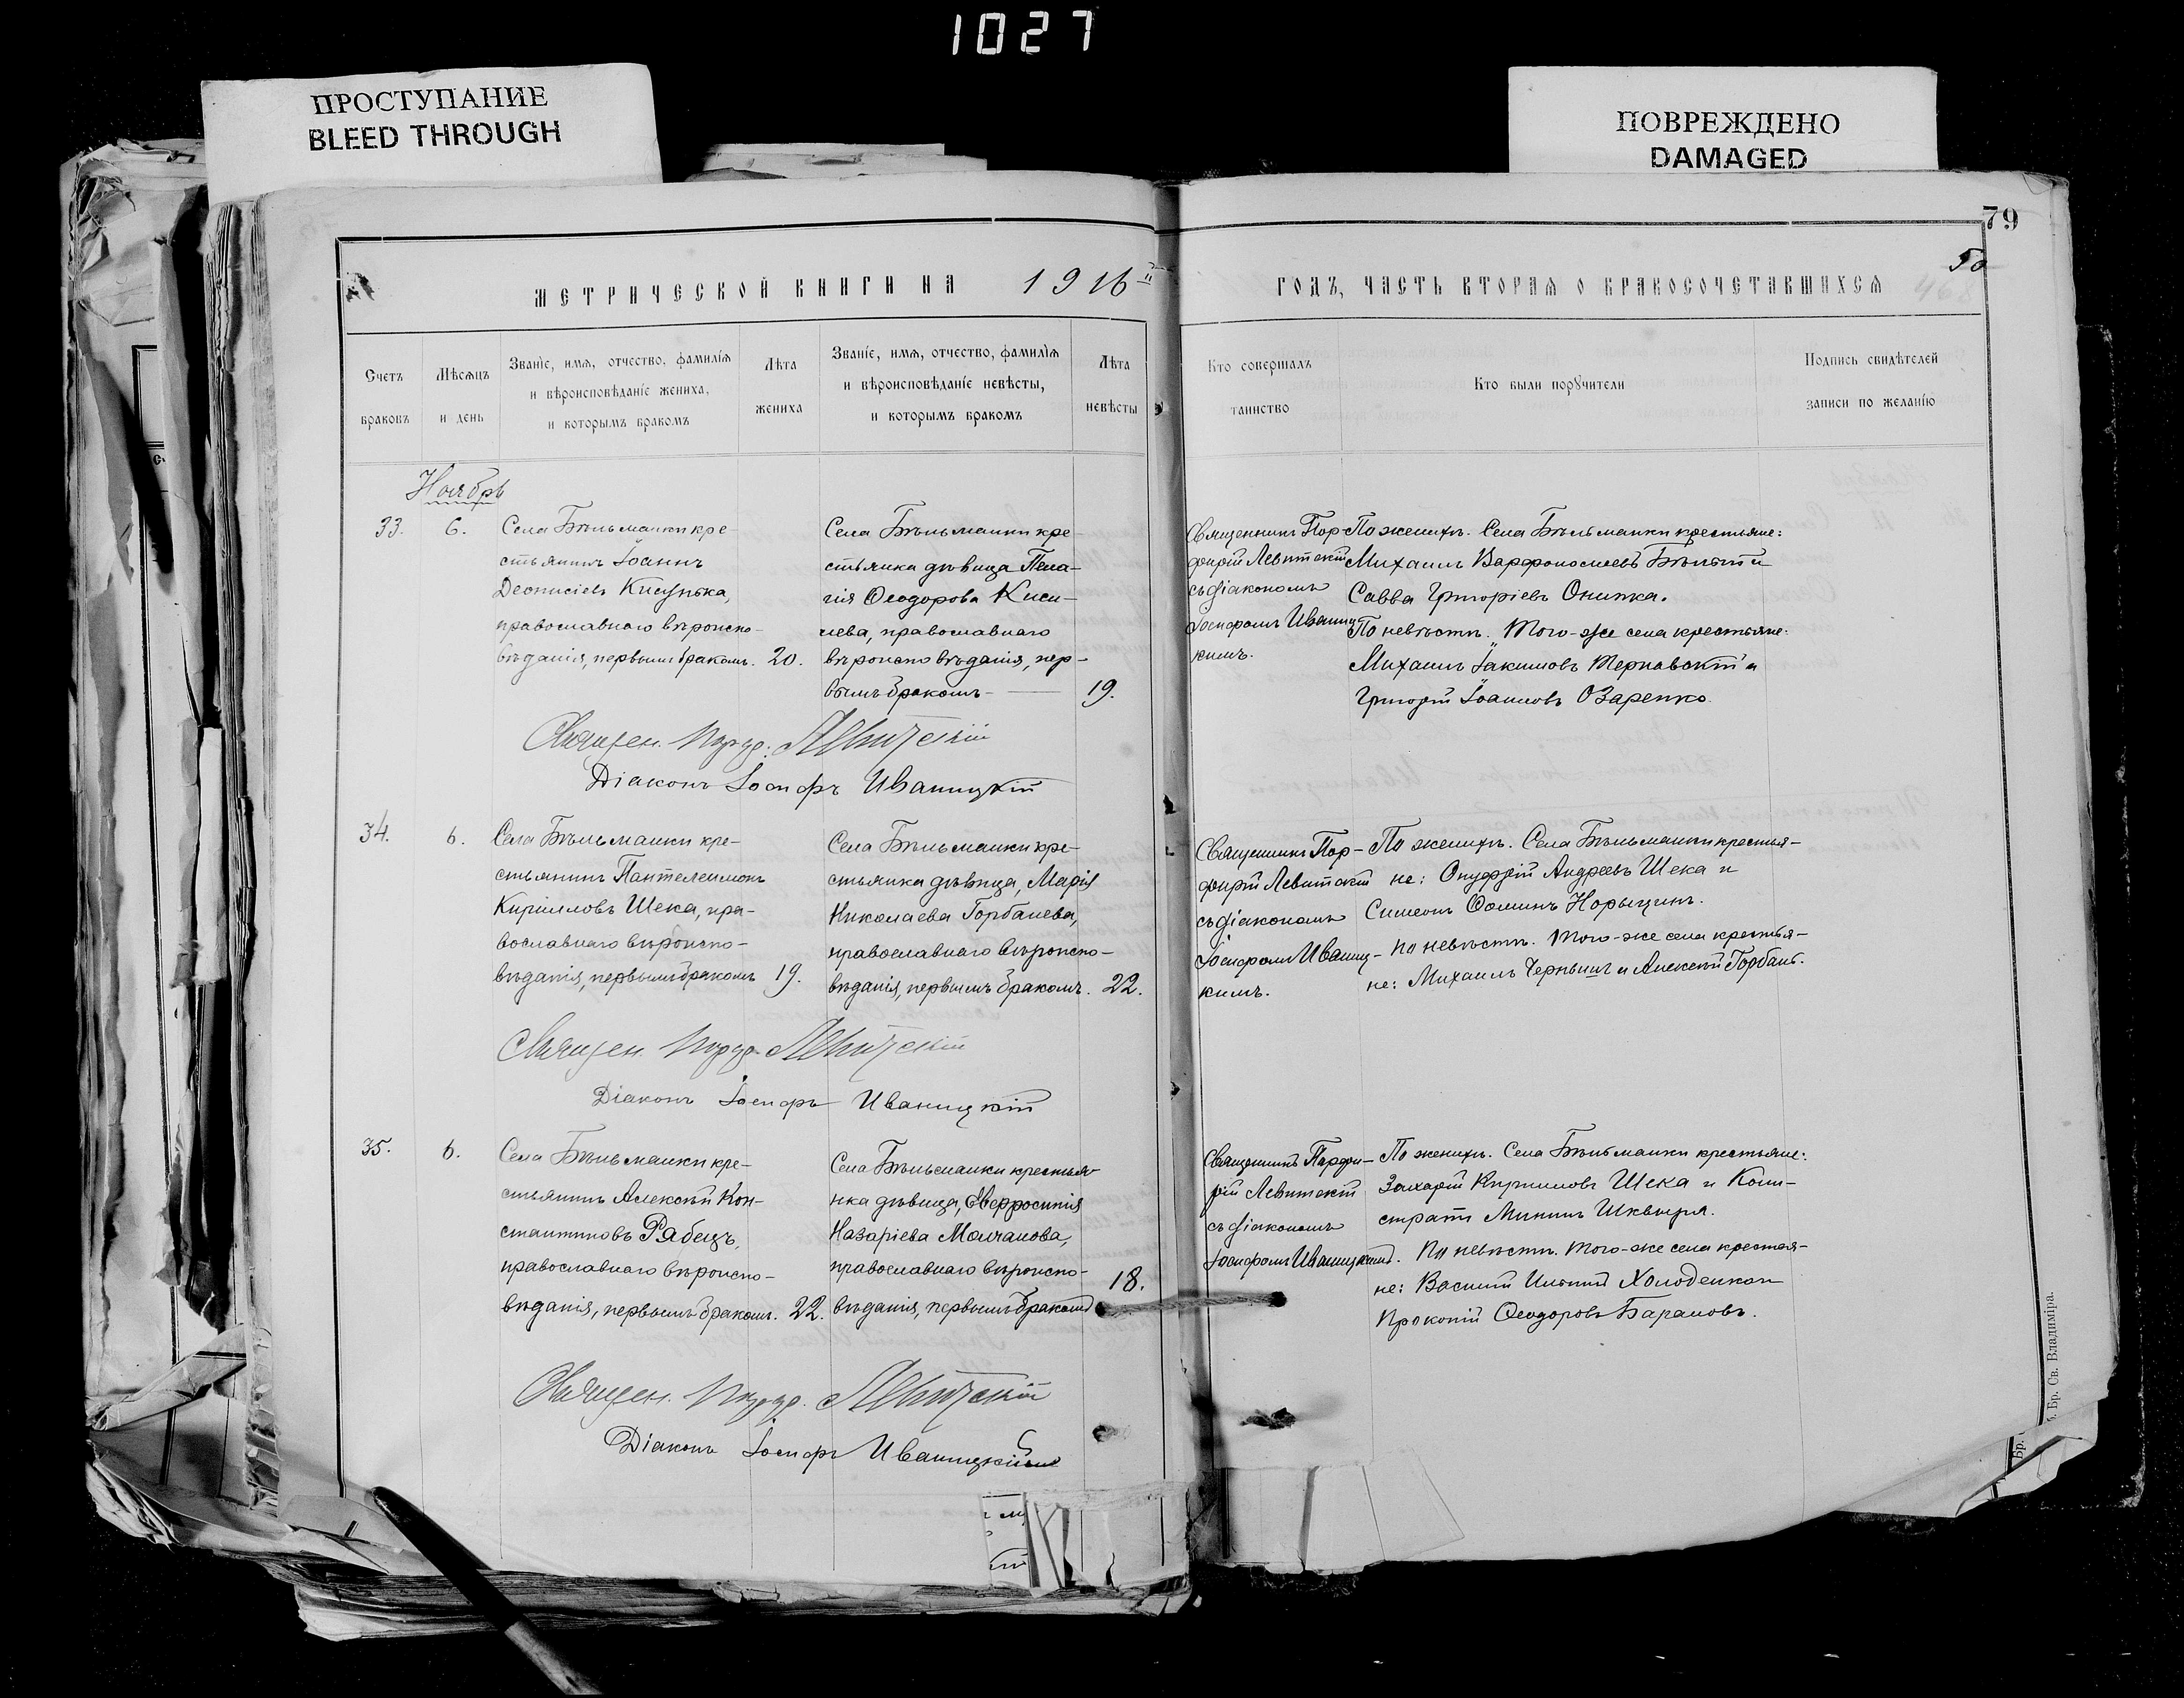 1027
ПРОСТУПАНИЕ
BLEED THROUGH
ПОВРЕЖДЕНО
DAMAGED
79
50
468
МЕТРИЧЕСКОЙ КНИГИ НА 1916й
ГОДЪ, ЧАСТЬ ВТОРАЯ О БРАКОСОЧЕТАВШИХСЯ
Счетъ
браковъ
Мѣсяцъ
и день
Званіе, имя, отчество, фамилія
и вѣроисповѣданіе жениха,
и которымъ бракомъ
Лѣта
жениха
Званіе, имя, отчество, фамилія
и вѣроисповѣданіе невѣсты,
и которымъ бракомъ
Лѣта
невѣсты
Кто совершалъ
таинство
Кто были поручители
Подпись свидѣтелей
записи по желанію
Ноябрь
33.
6.
Села Бѣльманки кре-
стьянинъ Іоаннъ
Деонисіевъ Кисунька,
православнаго вѣроиспо-
вѣданія, первымъ бракомъ.
20.
Села Бѣльманки кре-
стьянка дѣвица Пела-
гія Ѳеодорова Киси-
лева, православнаго
вѣроисповѣданія, пер-
вымъ бракомъ
19.
Священникъ Пор-
фирій Левитскій
съ діакономъ
Іосифомъ Иваниц-
кимъ.
По женихѣ. Села Бѣльманки крестьяне:
Михаилъ Варфоломеевъ и
Савва Григоріевъ Онипка.
По невѣстѣ. Того-же села крестьяне:
Михаилъ Іакимовъ Терновскій и
Григорій Іоанновъ Озаренко.
Священ. Порф. Левитскій
Діаконъ Іосифъ Иваницкій
34.
6.
Села Бѣльманки кре-
стьянинъ Пантелеимонъ
Кирилловъ Шека, пра-
вославнаго вѣроиспо-
вѣданія, первымъ бракомъ
19.
Села Бѣльманки кре-
стьянка дѣвица, Марія
Николаева Горбанева,
православнаго вѣроиспо-
вѣданія, первымъ бракомъ.
22.
Священникъ Пор-
фирій Левитскій
съ діакономъ
Іосифомъ Иваниц-
кимъ.
По женихѣ. Села Бѣльманки крестья-
не: Онуфрій Андреевъ Шека и
Симеонъ Ѳоминъ Норыцынъ.
По невѣстѣ. Того-же села крестья-
не: Михаилъ Чернышъ и Алексѣй Горбань.
Священ. Порф. Левитскій
Діаконъ Іосифъ Иваницкій
35.
6.
Села Бѣльманки кре-
стьянинъ Алексѣй Кон-
стантиновъ Рябецъ,
православнаго вѣроиспо-
вѣданія, первымъ бракомъ.
22.
Села Бѣльманки крестья-
нка дѣвица, Евфросинія
Назаріева Молчанова,
православнаго вѣроиспо-
вѣданія, первымъ бракомъ
18.
Священникъ Порфи-
рій Левитскій
съ діакономъ
Іосифомъ Иваницкимъ.
По женихѣ. Села Бѣльманки крестьяне:
Захарій Кирилловъ Шека и Кали-
стратъ Мининъ Шквыря.
По невѣстѣ. Того-же села крестья-
не: Василій Ильинъ Холоденко и
Прокопій Ѳеодоровъ Барановъ.
Священ. Порф. Левитскій
Діаконъ Іосифъ Иваницкій
Бр. Св. Владиміра.